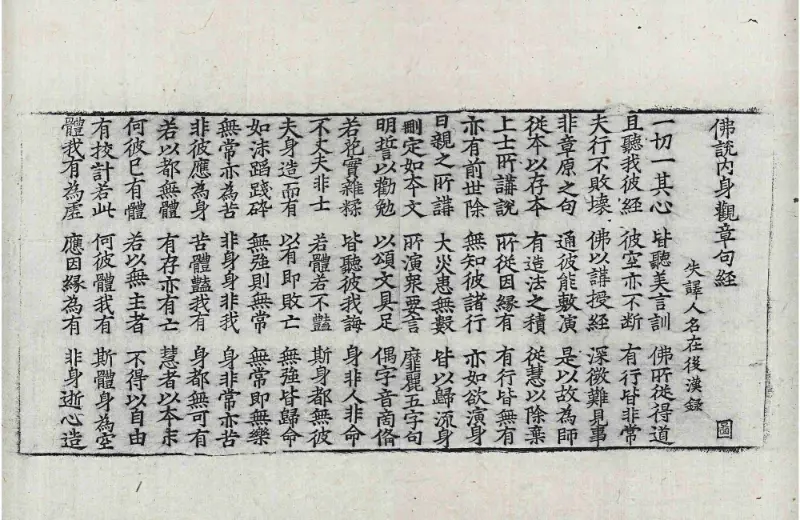 佛說內身觀章句經 圖
失譯人名在後漢錄
一切一其心 皆聽美言訓 佛所從得道
且聽我彼經 彼空亦不斷 有行皆非常
夫行不敗壞 佛以講授經 深微難見事
非章原之句 通彼能敷演 是以故為師
從本以存本 有造法之積 從慧以除棄
上士所講說 所從因緣有 有行皆無有
亦有前世除 無知彼諸行 亦如欲演身
日親之所講 大災患無數 皆以歸流身
刪定如本文 所演衆要言 靡麗五字句
明誓以勸勉 以頌文具足 偈字音商俻
若花實雜糅 皆聽彼我誨 身非人非命
不丈夫非士 若體若不豔 斯身都無彼
夫身造而有 以有即敗亡 無強皆歸命
如沫蹈踐碎 無強則無常 無常即無樂
無常亦為苦 非身身非我 身非常亦苦
非彼應為身 苦體豔我有 身都無可有
若以都無體 有存亦有亡 慧者以本末
何彼已有體 若以無主者 不得以自由
有挍計若此 何彼體我有 斯體身為空
體我有為虛 應因緣為有 非身逝心造